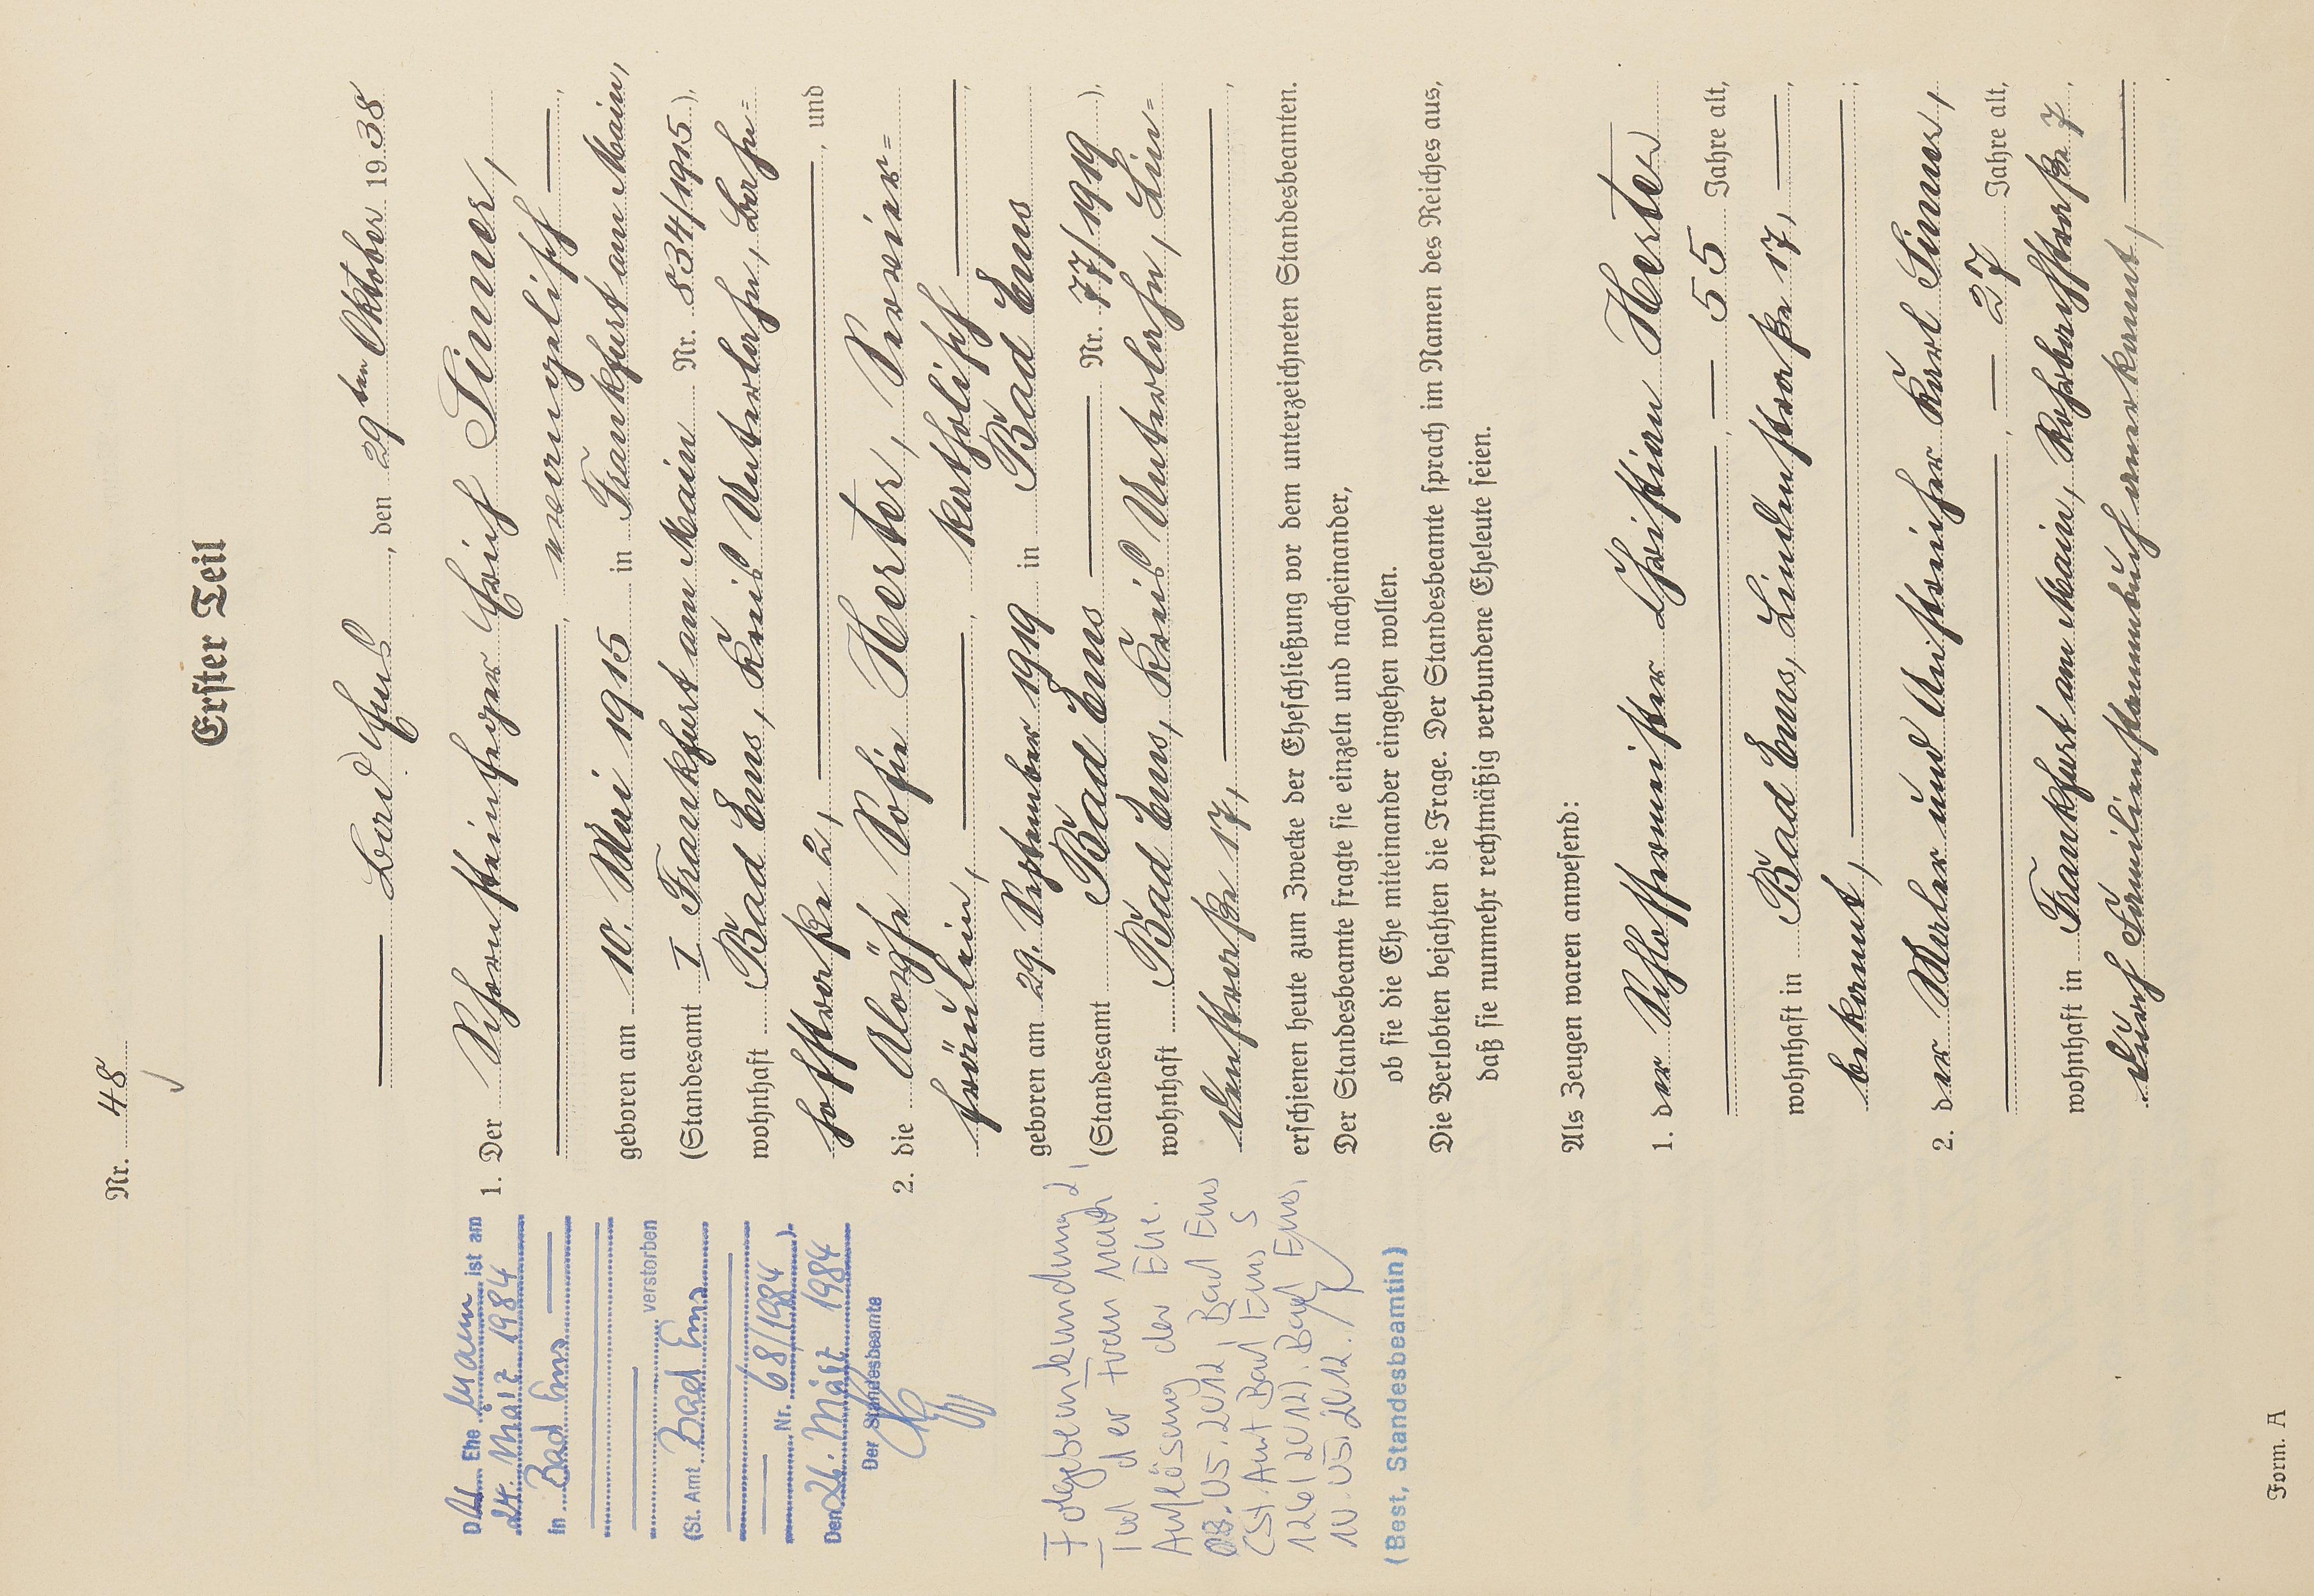 Nr. 48
Erster Teil
Bad Ems, den 29ten Oktober 1938
1. Der Schornsteinfeger Erich Simmer,
, evangelisch
geboren am 10. Mai 1915 in Frankfurt am Main,
(Standesamt I Frankfurt am Main Nr. 834/1915),
wohnhaft Bad Ems, Kreis Unterlahn, Bahn=
hofstraße 2, , und
2. die Aloysia Sofie Herter, Servier=
fräulein, , katholisch ,
geboren am 29. September 1919 in Bad Ems
(Standesamt Bad Ems Nr. 77/1919),
wohnhaft Bad Ems, Kreis Unterlahn, Lin=
denstraße 17, ,
erschienen heute zum Zwecke der Eheschließung vor dem unterzeichneten Standesbeamten.
Der Standesbeamte fragte sie einzeln und nacheinander,
ob sie die Ehe miteinander eingehen wollen.
Die Verlobten bejahten die Frage. Der Standesbeamte sprach im Namen des Reiches aus,
daß sie nunmehr rechtmäßig verbundene Eheleute seien.
Als Zeugen waren anwesend:
1. der Schlossermeister Christian Herter
, 55 Jahre alt,
wohnhaft in Bad Ems, Lindenstraße 17, ,
bekannt, ;
2. der Maler und Anstreicher Karl Simmer,
, 27 Jahre alt,
wohnhaft in Frankfurt am Main, Rohrbachstraße 7,
durch Familienstammbuch anerkannt,
Der Ehe Mann ist am
24. März 1984
in Bad Ems
verstorben
(St. Amt Bad Ems
Nr. 68/1984).
Den 26. März 1984
Der Standesbeamte
Folgebeurkundung 2:
Tod der Frau nach
Auflösung der Ehe.
08.05.2012, Bad Ems
(StAmt Bad Ems S
126/2012). Bad Ems,
10.05.2012.
(Best, Standesbeamtin)
Form. A